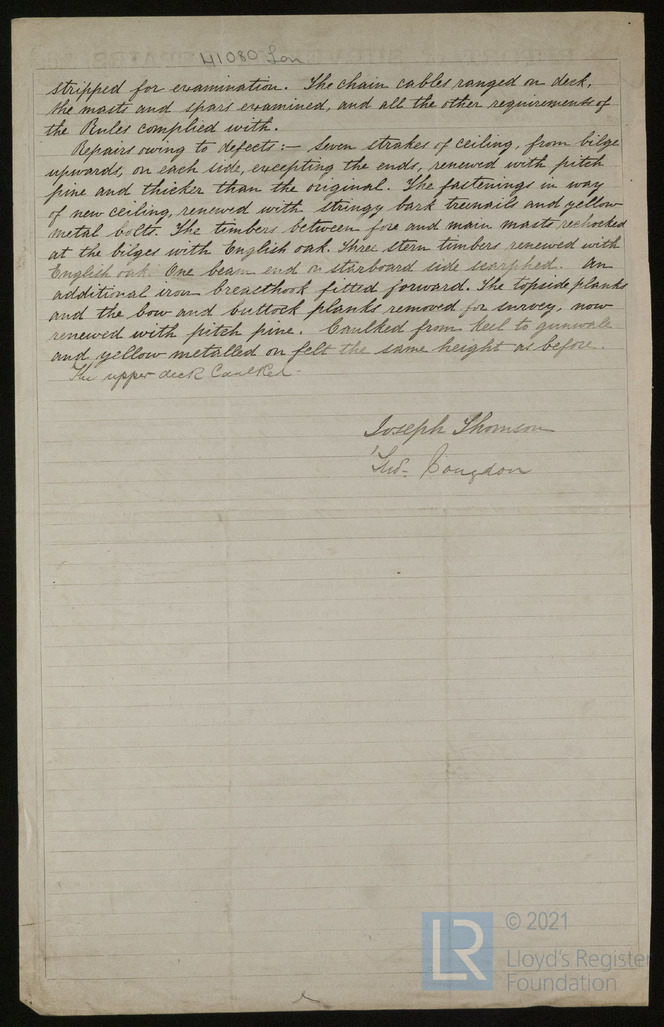 41080 Lon
stripped for examination. The chain cables ranged on deck,
the masts and spars examined, and all the other requirements of
the Rules complied with.
Repairs owing to defects:— Seven strakes of ceiling, from bilge
upwards, on each side, excepting the ends, renewed with pitch
pine and thicker than the original. The fastenings in way
of new ceiling, renewed with stringy bark treenails and yellow
metal bolts. The timbers between fore and main masts rechocked
at the bilges with English oak. Three stern timbers renewed with
English oak. One beam end on starboard side scarphed. An
additional iron breasthook fitted forward. The topside planks
and the bow and buttock planks removed for survey, now
renewed with pitch pine. Caulked from keel to gunwale
and yellow metalled on felt the same height as before.
The upper deck Caulked.
Joseph Thomson
Congdon
© 2021
LR
Lloyd's Register
Foundation